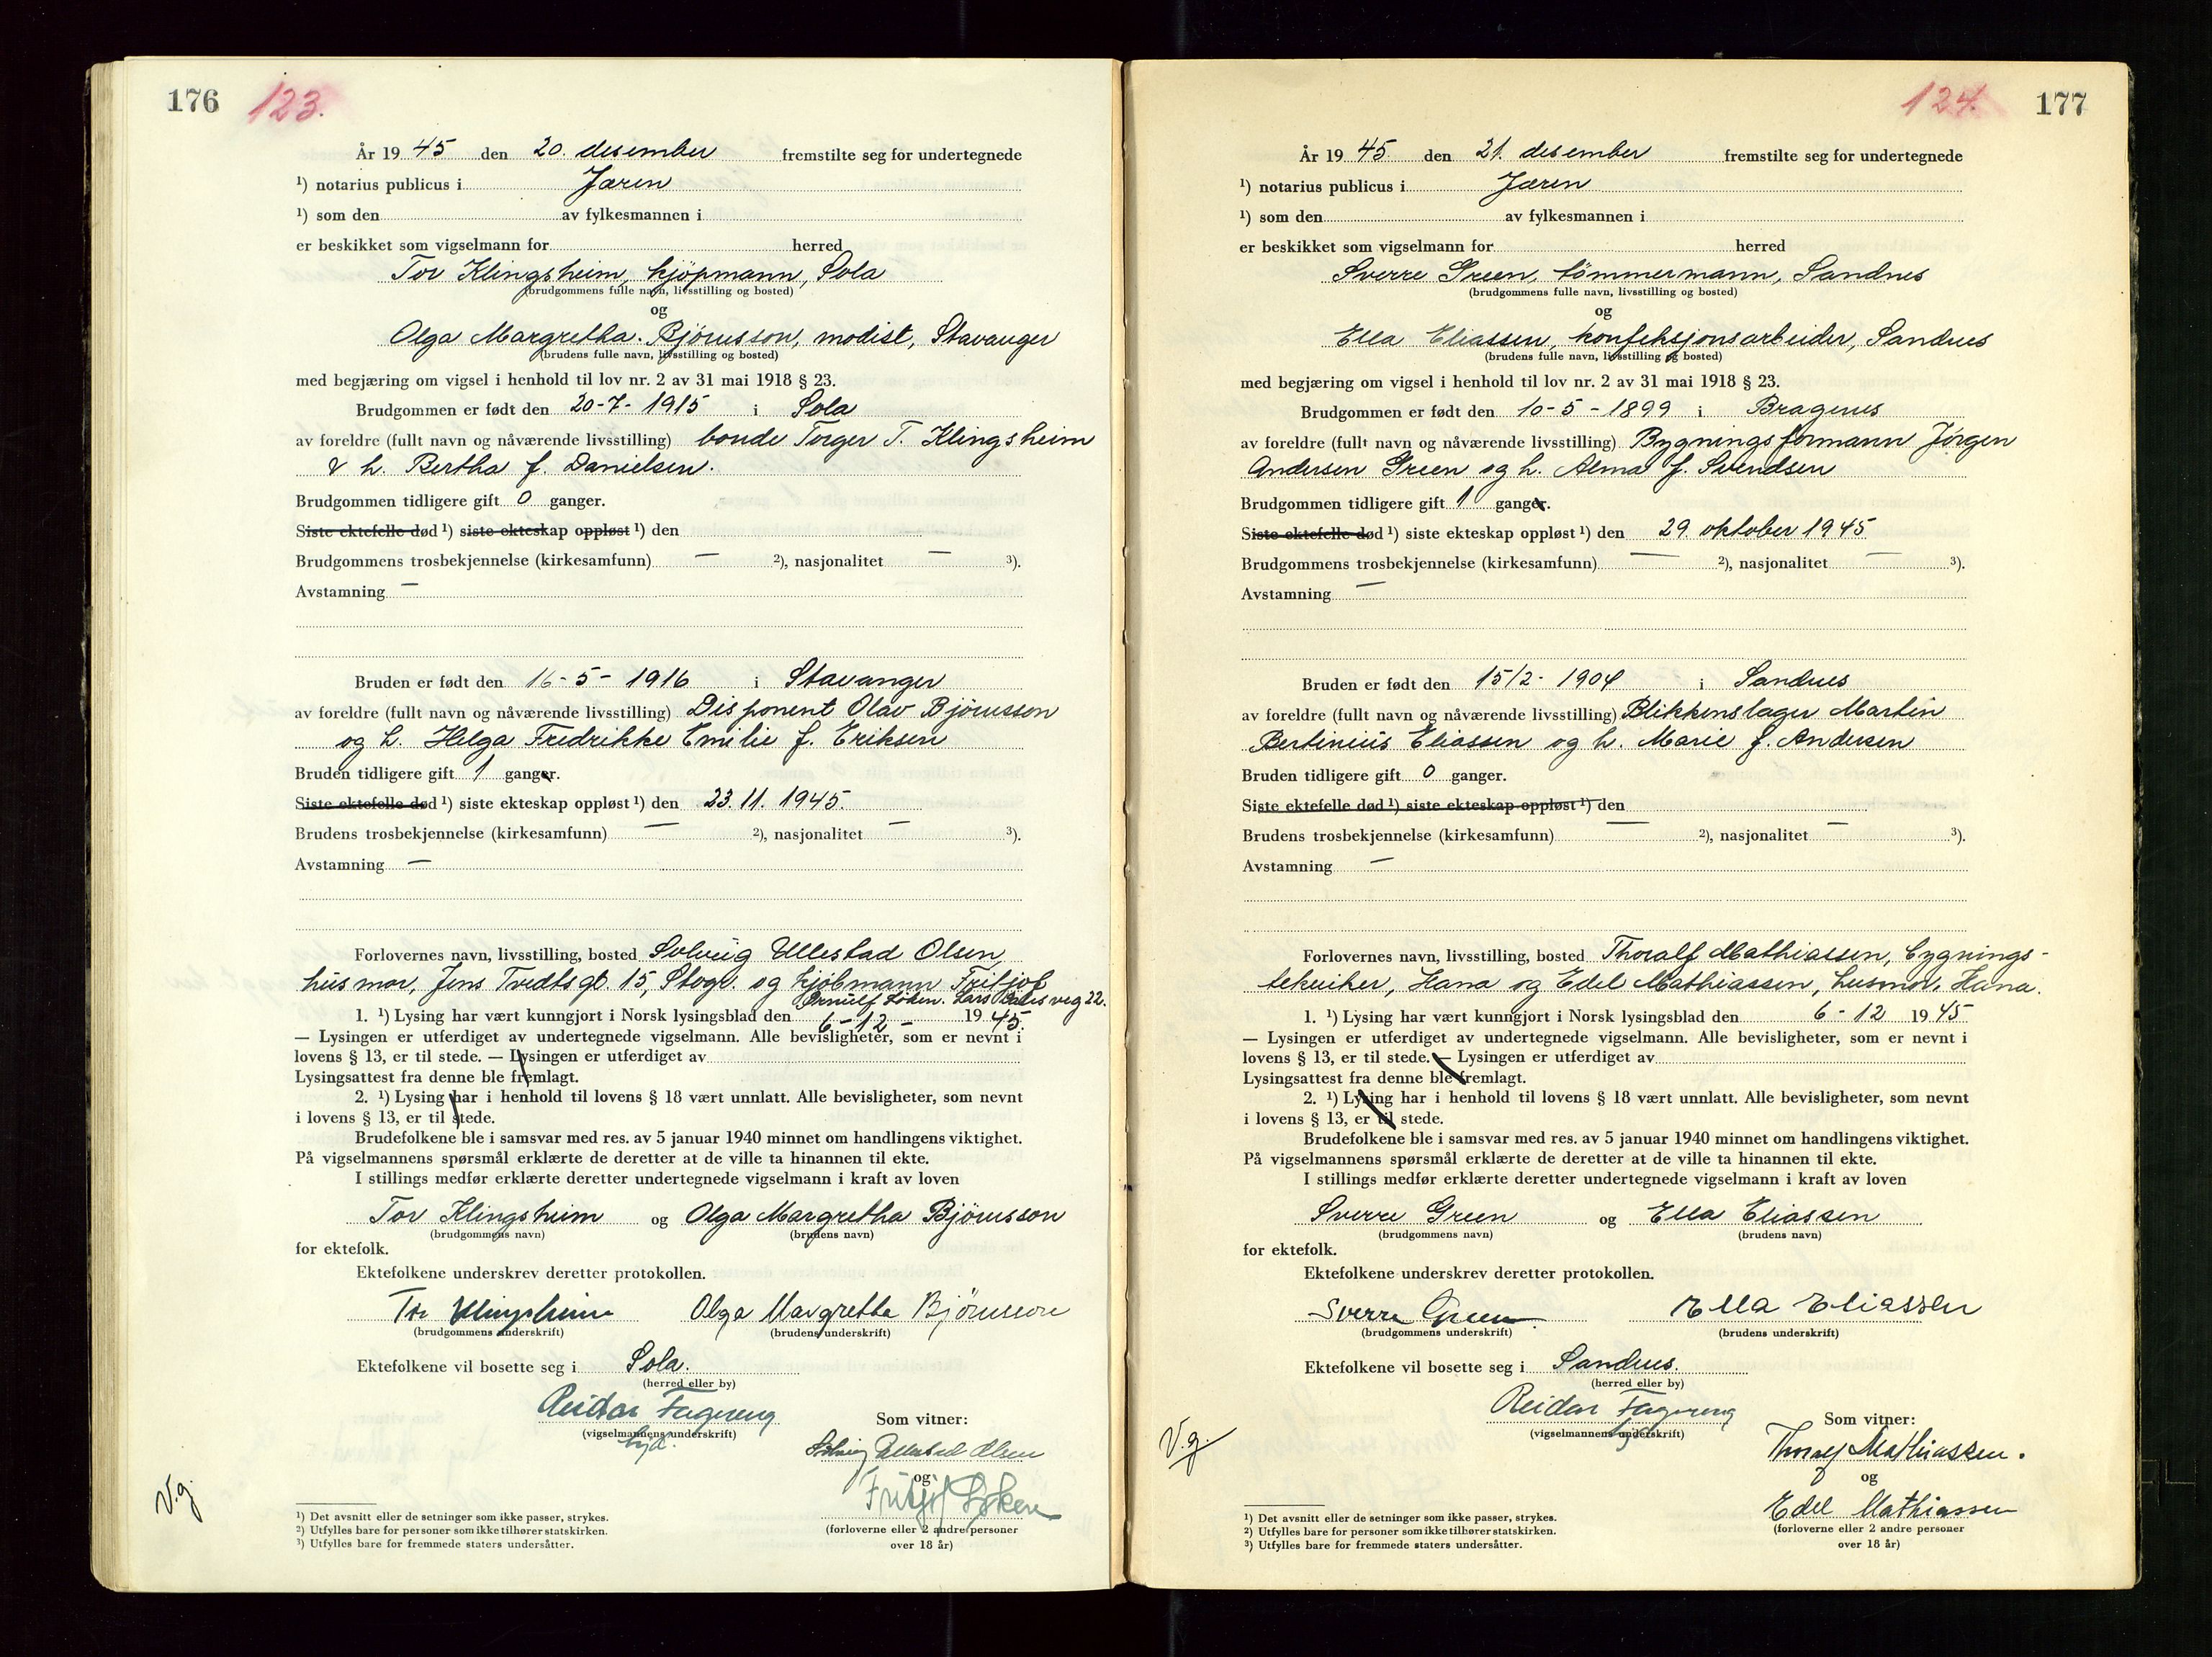 176 123.
År 19 45 den 20. desember fremstilte seg for undertegnede
¹) notarius publicus i Jæren
¹) som den av fylkesmannen i
er beskikket som vigselmann for herred
Tor Klingsheim, kjöpmann, Sola
(brudgommens fulle navn, livsstilling og bosted)
og
Olga Margretha Björnsson, modist, Stavanger
(brudens fulle navn, livsstilling og bosted)
med begjæring om vigsel i henhold til lov nr. 2 av 31 mai 1918 § 23.
Brudgommen er født den 20-7-1915 i Sola
av foreldre (fullt navn og nåværende livsstilling) bonde Torger T. Klingsheim
& h. Bertha f. Danielsen.
Brudgommen tidligere gift 0 ganger.
Siste ektefelle død ¹) siste ekteskap oppløst ¹) den
Brudgommens trosbekjennelse (kirkesamfunn) — ²), nasjonalitet — ³).
Avstamning —
Bruden er født den 16-5-1916 i Stavanger
av foreldre (fullt navn og nåværende livsstilling) Disponent Olav Björnsson
og h. Helga Fredrikke Emilie f. Eriksen
Bruden tidligere gift 1 ganger.
Siste ektefelle død ¹) siste ekteskap oppløst ¹) den 23.11.1945.
Brudens trosbekjennelse (kirkesamfunn) — ²), nasjonalitet — ³).
Avstamning —
Forlovernes navn, livsstilling, bosted Solveig Ullestad Olsen,
husmor, Jens Tvedtsgt. 15, Stvgr. og kjöbmann Fritjof
Ørnulf Löken. Lars veg 22.
1. ¹) Lysing har vært kunngjort i Norsk lysingsblad den 6-12- 19 45.
— Lysingen er utferdiget av undertegnede vigselmann. Alle bevisligheter, som er nevnt i
lovens § 13, er til stede. — Lysingen er utferdiget av
Lysingsattest fra denne ble fremlagt.
2. ¹) Lysing har i henhold til lovens § 18 vært unnlatt. Alle bevisligheter, som nevnt
i lovens § 13, er til stede.
Brudefolkene ble i samsvar med res. av 5 januar 1940 minnet om handlingens viktighet.
På vigselmannens spørsmål erklærte de deretter at de ville ta hinannen til ekte.
I stillings medfør erklærte deretter undertegnede vigselmann i kraft av loven
Tor Klingsheim og Olga Margretha Björnsson
(brudgommens navn) (brudens navn)
for ektefolk.
Ektefolkene underskrev deretter protokollen.
Tor Klingsheim Olga Margretha Björnsson
(brudgommens underskrift) (brudens underskrift)
Ektefolkene vil bosette seg i Sola.
(herred eller by)
Reidar Fagereng
(vigselmannens underskrift)
Som vitner:
Solveig Ullestad Olsen
og
Fritjof Løken
(forloverne eller 2 andre personer
over 18 år)
V.g.
¹) Det avsnitt eller de setninger som ikke passer, strykes.
²) Utfylles bare for personer som ikke tilhører statskirken.
³) Utfylles bare for fremmede staters undersåtter.
124. 177
År 19 45. den 21. desember fremstilte seg for undertegnede
¹) notarius publicus i Jæren
¹) som den av fylkesmannen i
er beskikket som vigselmann for herred
Sverre Green, tömmermann, Sandnes
(brudgommens fulle navn, livsstilling og bosted)
og
Ella Eliassen, konfeksjonsarbeider, Sandnes
(brudens fulle navn, livsstilling og bosted)
med begjæring om vigsel i henhold til lov nr. 2 av 31 mai 1918 § 23.
Brudgommen er født den 10-5-1899 i Bragernes
av foreldre (fullt navn og nåværende livsstilling) Bygningsformann Jörgen
Andersen Green og h. Alma f. Svendsen
Brudgommen tidligere gift 1 ganger.
Siste ektefelle død ¹) siste ekteskap oppløst ¹) den 29. oktober 1945
Brudgommens trosbekjennelse (kirkesamfunn) — ²), nasjonalitet — ³).
Avstamning —
Bruden er født den 15/2-1904 i Sandnes
av foreldre (fullt navn og nåværende livsstilling) Blikkenslager Martin
Bertinius Eliassen og h. Marie f. Andersen
Bruden tidligere gift 0 ganger.
Siste ektefelle død ¹) siste ekteskap oppløst ¹) den
Brudens trosbekjennelse (kirkesamfunn) — ²), nasjonalitet — ³).
Avstamning —
Forlovernes navn, livsstilling, bosted Thoralf Mathiassen, bygnings-
tekniker, Hana og Edel Mathiassen, husmor, Hana.
1. ¹) Lysing har vært kunngjort i Norsk lysingsblad den 6-12 19 45
— Lysingen er utferdiget av undertegnede vigselmann. Alle bevisligheter, som er nevnt i
lovens § 13, er til stede. — Lysingen er utferdiget av
Lysingsattest fra denne ble fremlagt.
2. ¹) Lysing har i henhold til lovens § 18 vært unnlatt. Alle bevisligheter, som nevnt
i lovens § 13, er til stede.
Brudefolkene ble i samsvar med res. av 5 januar 1940 minnet om handlingens viktighet.
På vigselmannens spørsmål erklærte de deretter at de ville ta hinannen til ekte.
I stillings medfør erklærte deretter undertegnede vigselmann i kraft av loven
Sverre Green og Ella Eliassen
(brudgommens navn) (brudens navn)
for ektefolk.
Ektefolkene underskrev deretter protokollen.
Sverre Green Ella Eliassen
(brudgommens underskrift) (brudens underskrift)
Ektefolkene vil bosette seg i Sandnes.
(herred eller by)
Reidar Fagereng
(vigselmannens underskrift)
Som vitner:
Thoralf Mathiassen.
og
Edel Mathiassen
(forloverne eller 2 andre personer
over 18 år)
V.g.
¹) Det avsnitt eller de setninger som ikke passer, strykes.
²) Utfylles bare for personer som ikke tilhører statskirken.
³) Utfylles bare for fremmede staters undersåtter.